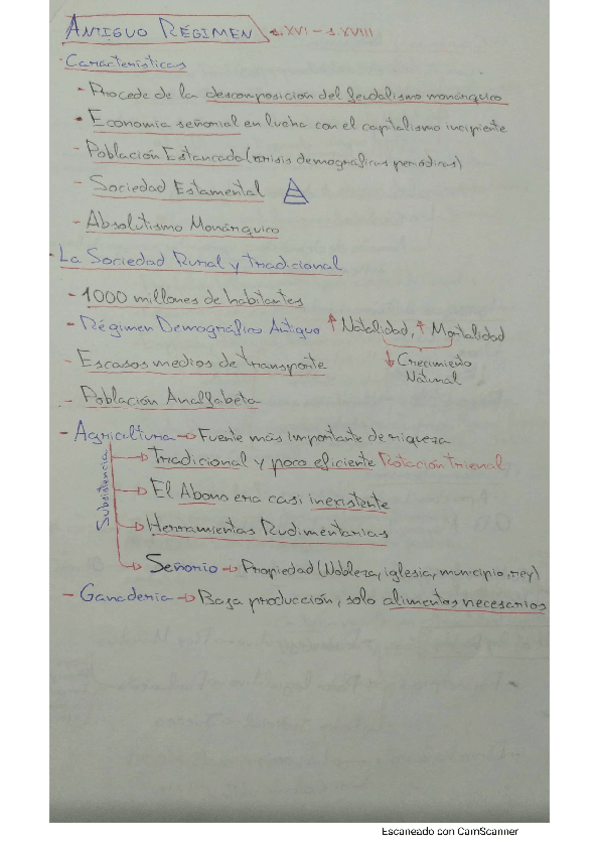 ANTIGUO RÉGIMEN s.XVI - s.XVIII
· Características
- Procede de la descomposición del feudalismo monárquico
- Economía señorial en lucha con el capitalismo incipiente
- Población Estancada (crisis demográficas periódicas)
- Sociedad Estamental
- Absolutismo Monárquico
· La Sociedad Rural y Tradicional
- 1000 millones de habitantes
- Régimen Demográfico Antiguo ↑ Natalidad, ↑ Mortalidad
↓ Crecimiento
Natural
- Escasos medios de transporte
- Población Analfabeta
- Agricultura → Fuente más importante de riqueza
Subsistencia
→ Tradicional y poco eficiente Rotación trienal
→ El Abono era casi inexistente
→ Herramientas Rudimentarias
→ Señorío → Propiedad (Nobleza, iglesia, municipio, rey)
- Ganadería → Baja producción, solo alimentos necesarios
Escaneado con CamScanner